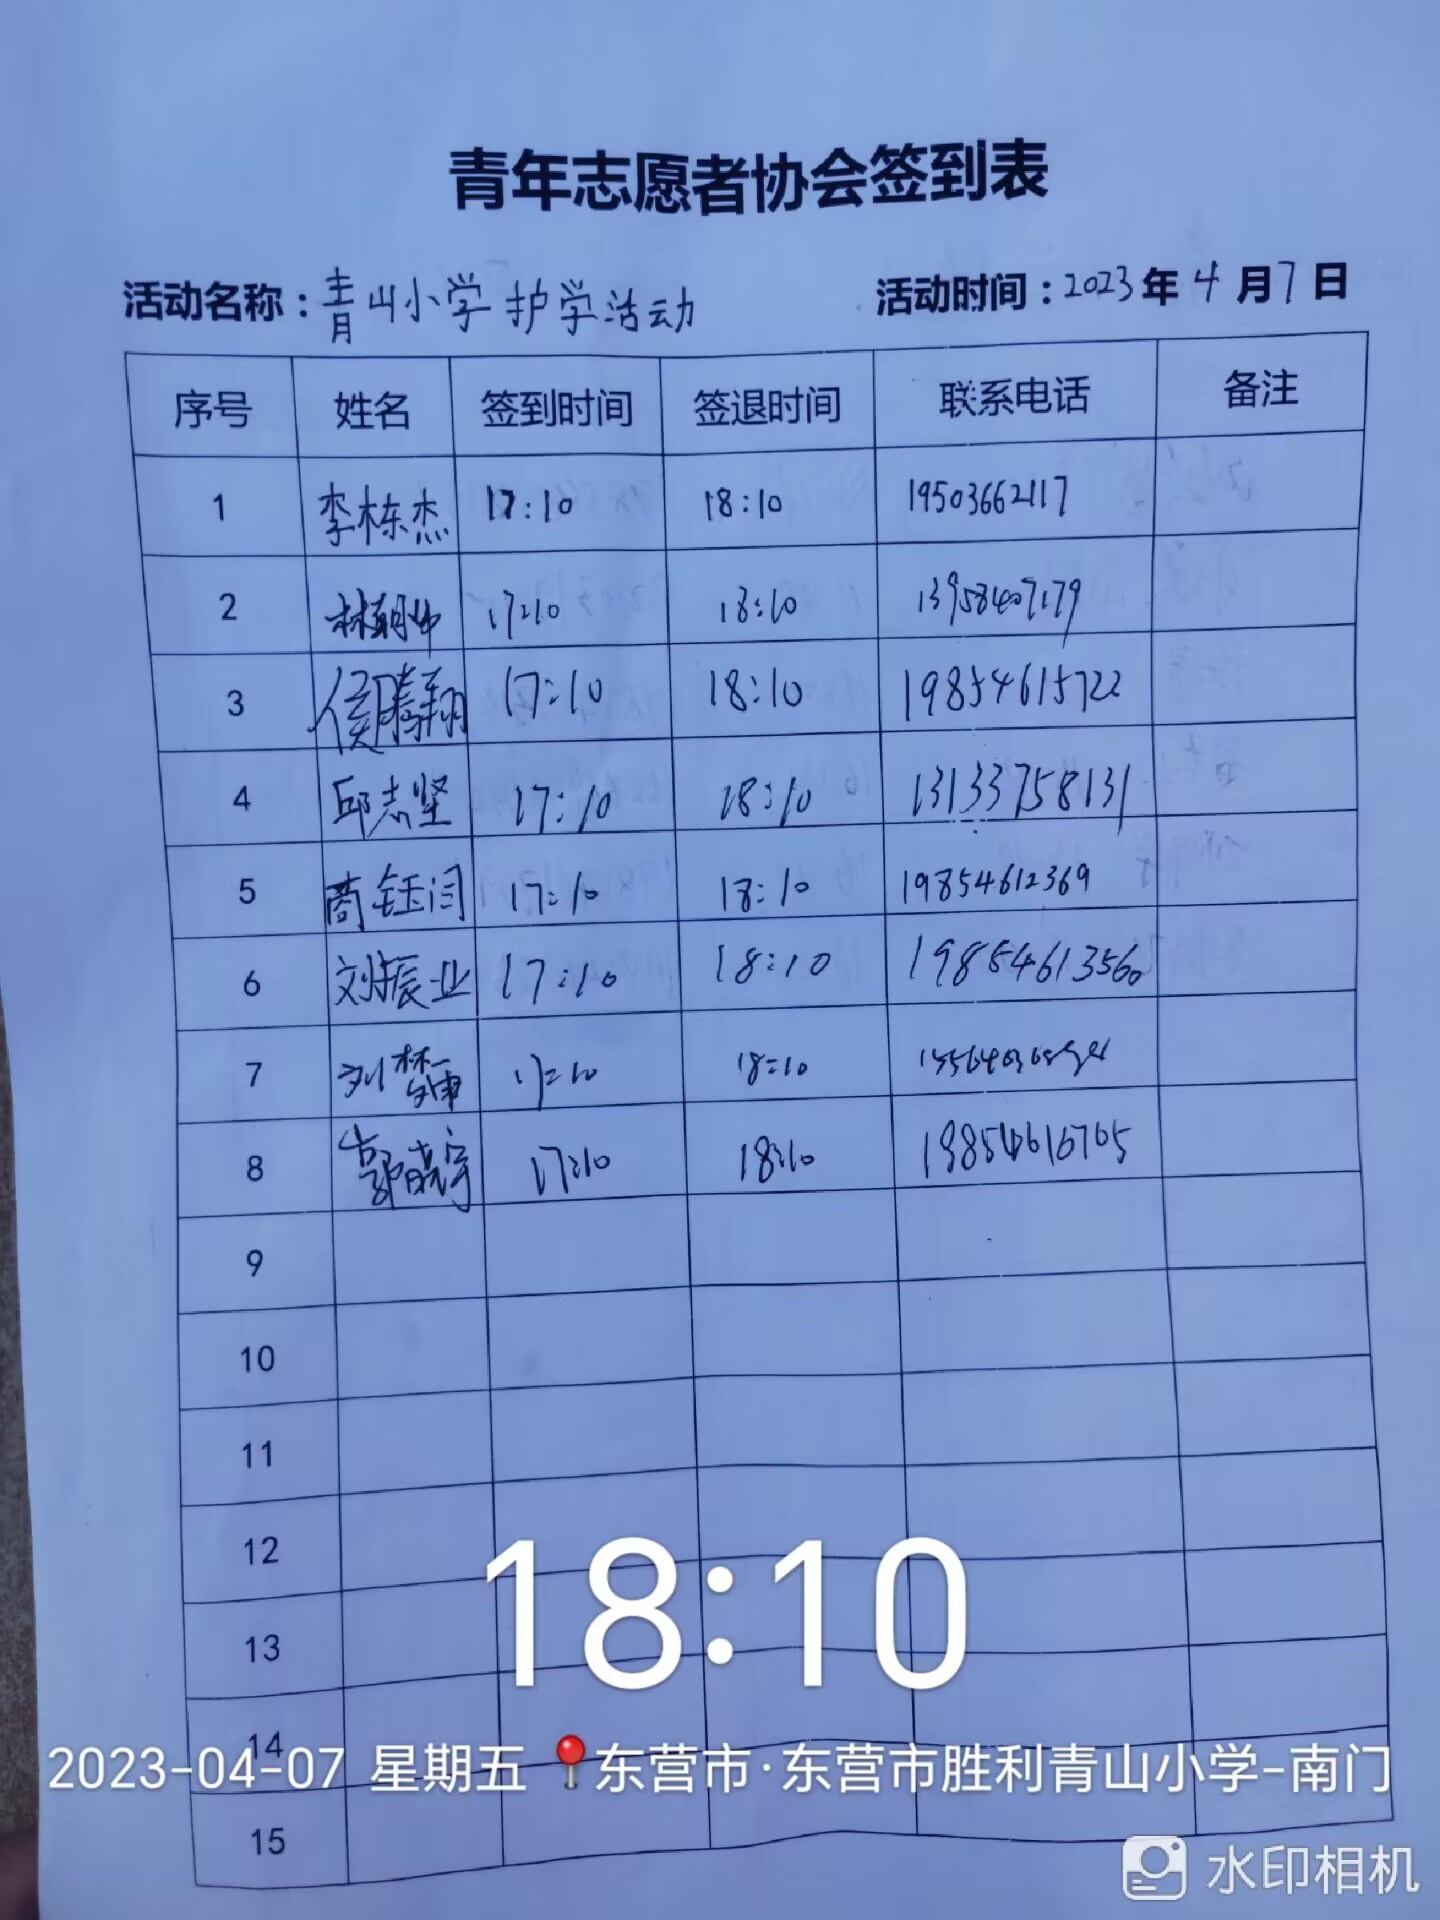 青年志愿者协会签到表
活动名称：青山小学护学活动 活动时间：2023年4月7日
序号 姓名 签到时间 签退时间 联系电话 备注
1 李栋杰 17:10 18:10 19503662117
2 17:10 18:10 13958407179
3 侯腾翔 17:10 18:10 19854615722
4 邱志坚 17:10 18:10 13133758131
5 商钰闫 17:10 18:10 19854612369
6 刘振业 17:10 18:10 19854613560
7 刘梦 17:10 18:10
8 郭晓宇 17:10 18:10 19854616705
9
10
11
12
13
14
15
18:10
2023-04-07 星期五 东营市·东营市胜利青山小学-南门
水印相机